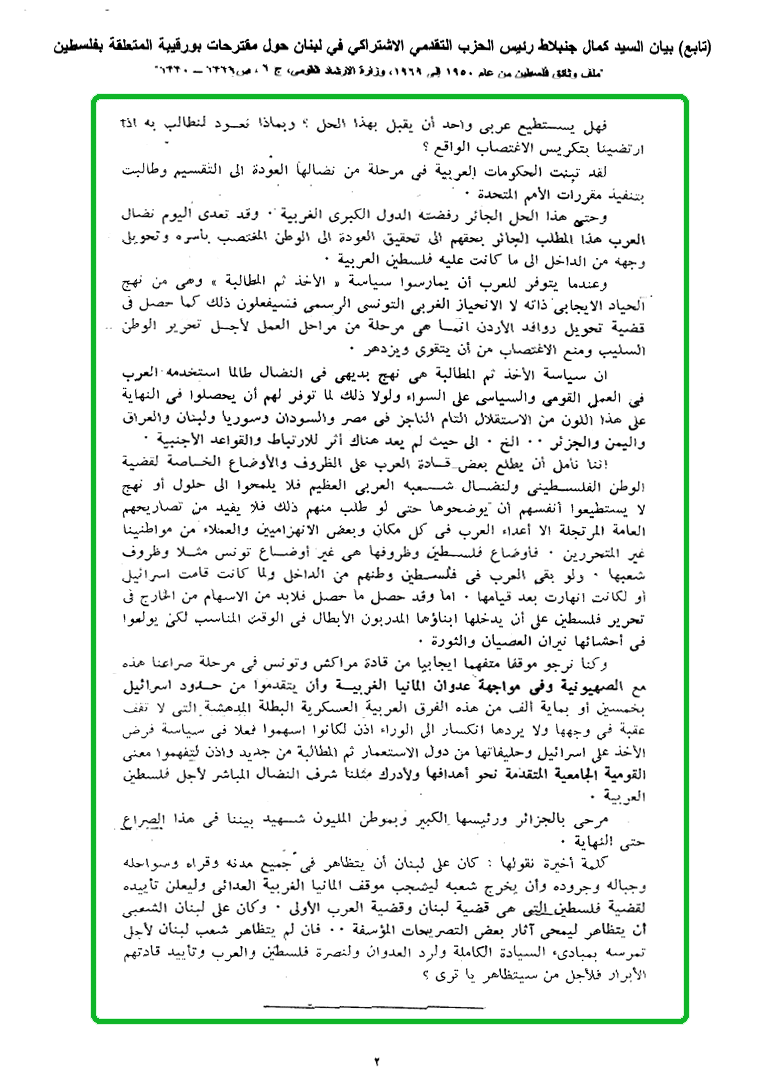 (تابع) بيان السيد كمال جنبلاط رئيس الحزب التقدمي الاشتراكي في لبنان حول مقترحات بورقيبة المتعلقة بفلسطين
"ملف وثائق فلسطين من عام ١٩٥٠ إلى ١٩٦٩، وزارة الارشاد القومي، ج ٦، ص١٣٣٦ – ١٣٤٠"
فهل يستطيع عربى واحد أن يقبل بهذا الحل ؟ وبماذا نعود لنطالب به اذا
ارتضينا بتكريس الاغتصاب الواقع ؟
لقد تبنت الحكومات العربية فى مرحلة من نضالها العودة الى التقسيم وطالبت
بتنفيذ مقررات الأمم المتحدة ٠
وحتى هذا الحل الجائر رفضته الدول الكبرى الغربية ٠ وقد تعدى اليوم نضال
العرب هذا المطلب الجائر بحقهم الى تحقيق العودة الى الوطن المغتصب بأسره وتحويل
وجهه من الداخل الى ما كانت عليه فلسطين العربية ٠
وعندما يتوفر للعرب أن يمارسوا سياسة « الأخذ ثم المطالبة » وهى من نهج
الحياد الايجابى ذاته لا الانحياز الغربى التونسى الرسمى فسيفعلون ذلك كما حصل فى
قضية تحويل روافد الأردن انما هى مرحلة من مراحل العمل لأجل تحرير الوطن
السليب ومنع الاغتصاب من أن يتقوى ويزدهر ٠
ان سياسة الأخذ ثم المطالبة هى نهج بديهى فى النضال طالما استخدمه العرب
فى العمل القومى والسياسى على السواء ولولا ذلك لما توفر لهم أن يحصلوا فى النهاية
على هذا اللون من الاستقلال التام الناجز فى مصر والسودان وسوريا ولبنان والعراق
واليمن والجزئر ٠٠ الخ ٠ الى حيث لم يعد هناك أثر للارتباط والقواعد الأجنبية ٠
اننا نأمل أن يطلع بعض قادة العرب على الظروف والأوضاع الخاصة لقضية
الوطن الفلسطينى ولنضال شعبه العربى العظيم فلا يلمحوا الى حلول أو نهج
لا يستطيعوا أنفسهم أن يوضحوها حتى لو طلب منهم ذلك فلا يفيد من تصاريحهم
العامة المرتجلة الا أعداء العرب فى كل مكان وبعض الانهزاميين والعملاء من مواطنينا
غير المتحررين ٠ فأوضاع فلسطين وظروفها هى غير أوضاع تونس مثلا وظروف
شعبها ٠ ولو بقى العرب فى فلسطين وطنهم من الداخل ولما كانت قامت اسرائيل
أو لكانت انهارت بعد قيامها ٠ اما وقد حصل ما حصل فلابد من الاسهام من الخارج فى
تحرير فلسطين على أن يدخلها ابناؤها المدربون الأبطال فى الوقت المناسب لكى يولعوا
فى أحشائها نيران العصيان والثورة ٠
وكنا نرجو موقفا متفهما ايجابيا من قادة مراكش وتونس فى مرحلة صراعنا هذه
مع الصهيونية وفى مواجهة عدوان المانيا الغربية وأن يتقدموا من حدود اسرائيل
بخمسين أو بماية ألف من هذه الفرق العربية العسكرية البطلة المدهشة التى لا تقف
عقبة فى وجهها ولا يردها انكسار الى الوراء اذن لكانوا اسهموا فعلا فى سياسة فرض
الأخذ على اسرائيل وحليفاتها من دول الاستعمار ثم المطالبة من جديد واذن لتفهموا معنى
القومية الجامعية المتقدمة نحو أهدافها ولأدرك مثلنا شرف النضال المباشر لأجل فلسطين
العربية ٠
مرحى بالجزائر ورئيسها الكبير وبموطن المليون شهيد بيننا فى هذا الصراع
حتى النهاية ٠
كلمة أخيرة نقولها : كان على لبنان أن يتظاهر فى جميع مدنه وقراه وسواحله
وجباله وجروده وأن يخرج شعبه ليشجب موقف المانيا الغربية العدائى وليعلن تأييده
لقضية فلسطين التى هى قضية لبنان وقضية العرب الأولى ٠ وكان على لبنان الشعبى
أن يتظاهر ليمحى آثار بعض التصريحات المؤسفة ٠٠ فان لم يتظاهر شعب لبنان لأجل
تمرسه بمبادىء السيادة الكاملة ولرد العدوان ولنصرة فلسطين والعرب وتأييد قادتهم
الأبرار فلأجل من سيتظاهر يا ترى ؟
٢